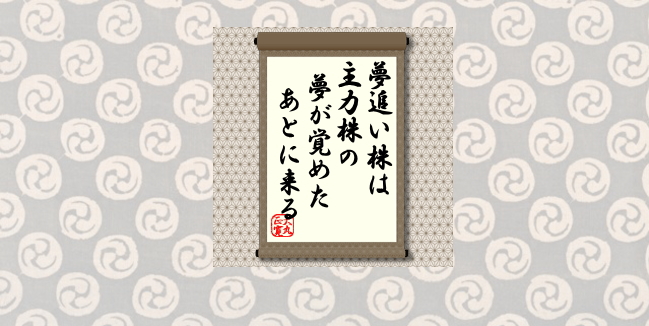 夢追い株は
主力株の
夢が覚めた
あとに来る